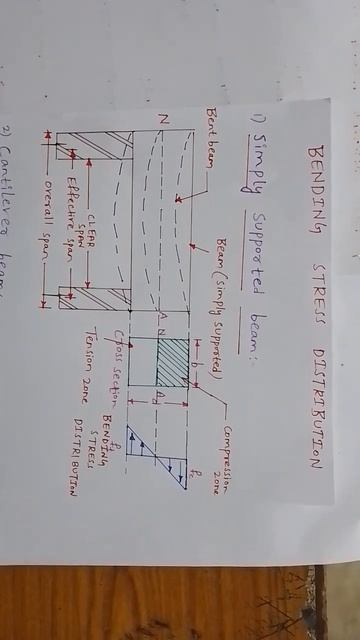 BENDING STRESS DISTRIBUTION
1) Simply supported beam:-
Bent beam
Beam (simply supported)
Compression zone
N
A
N
A
b
d
fc
ft
CLEAR SPAN
Effective span
overall span
Cross section
Tension zone
BENDING STRESS DISTRIBUTION
2) Cantilever beam: